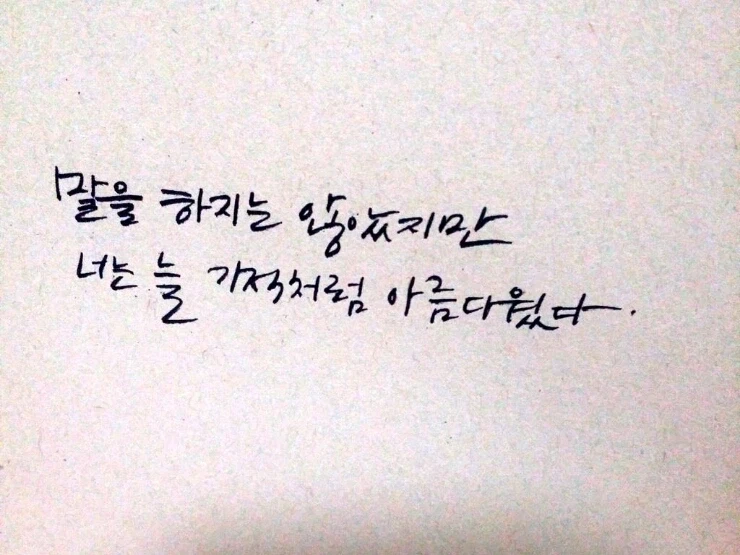 말을 하지는 않았지만
너는 늘 기적처럼 아름다웠다.